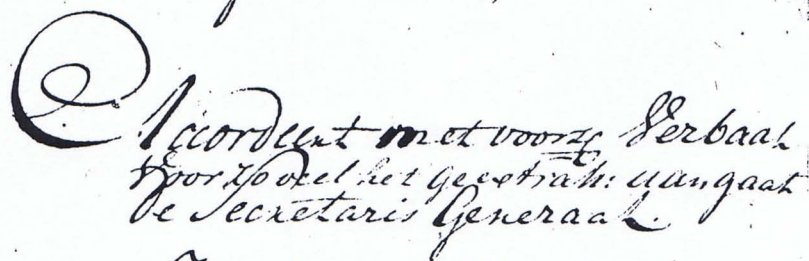 Accordeert met voorz. Verbaal
voor zo veel het geextrah: aangaat
De Secretaris Generaal.